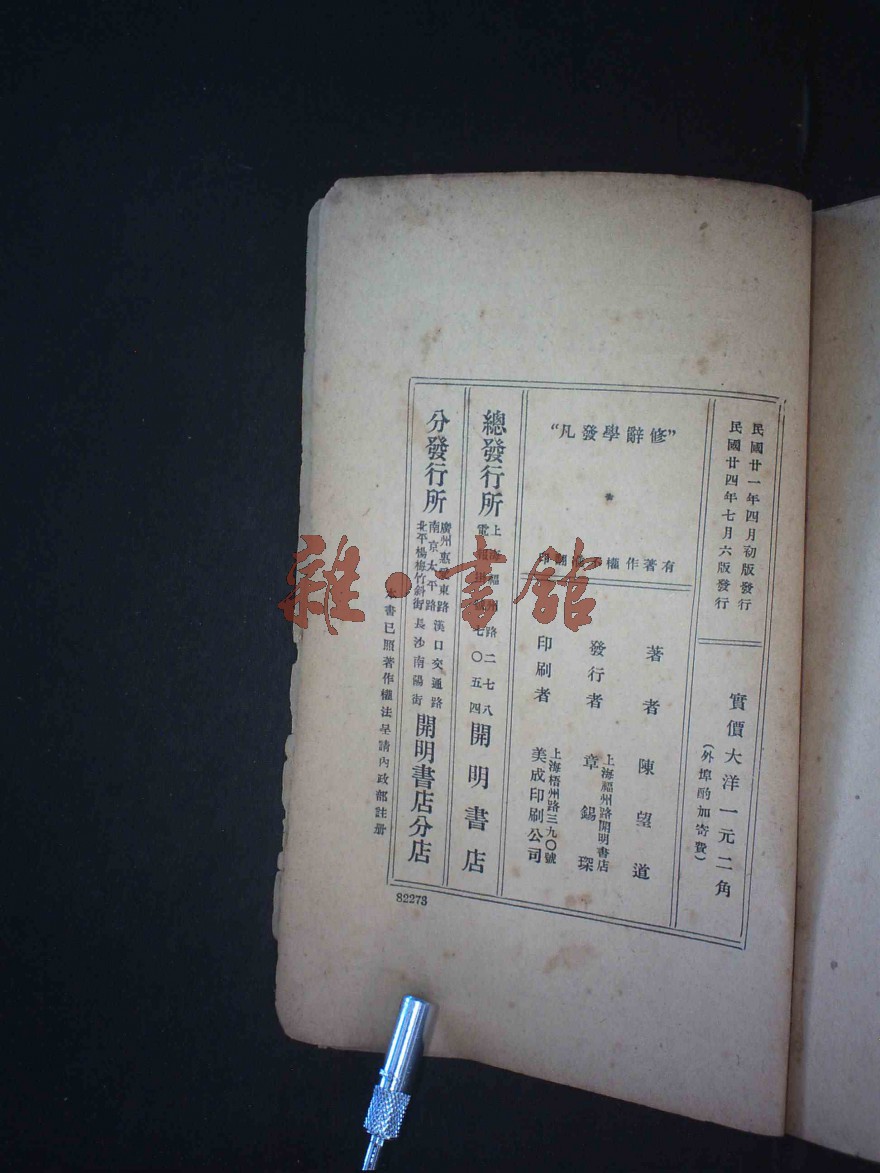 民國廿一年四月初版發行
民國廿四年七月六版發行
實價大洋一元二角
(外埠酌加寄費)
"修辭學發凡"
有著作權不准翻印
著者 陳望道
發行者 上海福州路開明書店
章錫琛
印刷者 上海梧州路三九〇號
美成印刷公司
總發行所 上海福州路二七八
電報掛號七〇五四
開明書店
分發行所 廣州惠愛東路 漢口交通路
南京太平路
北平楊梅竹斜街 長沙南陽街
開明書店分店
本書已照著作權法呈請內政部註冊
82273
雜·書館